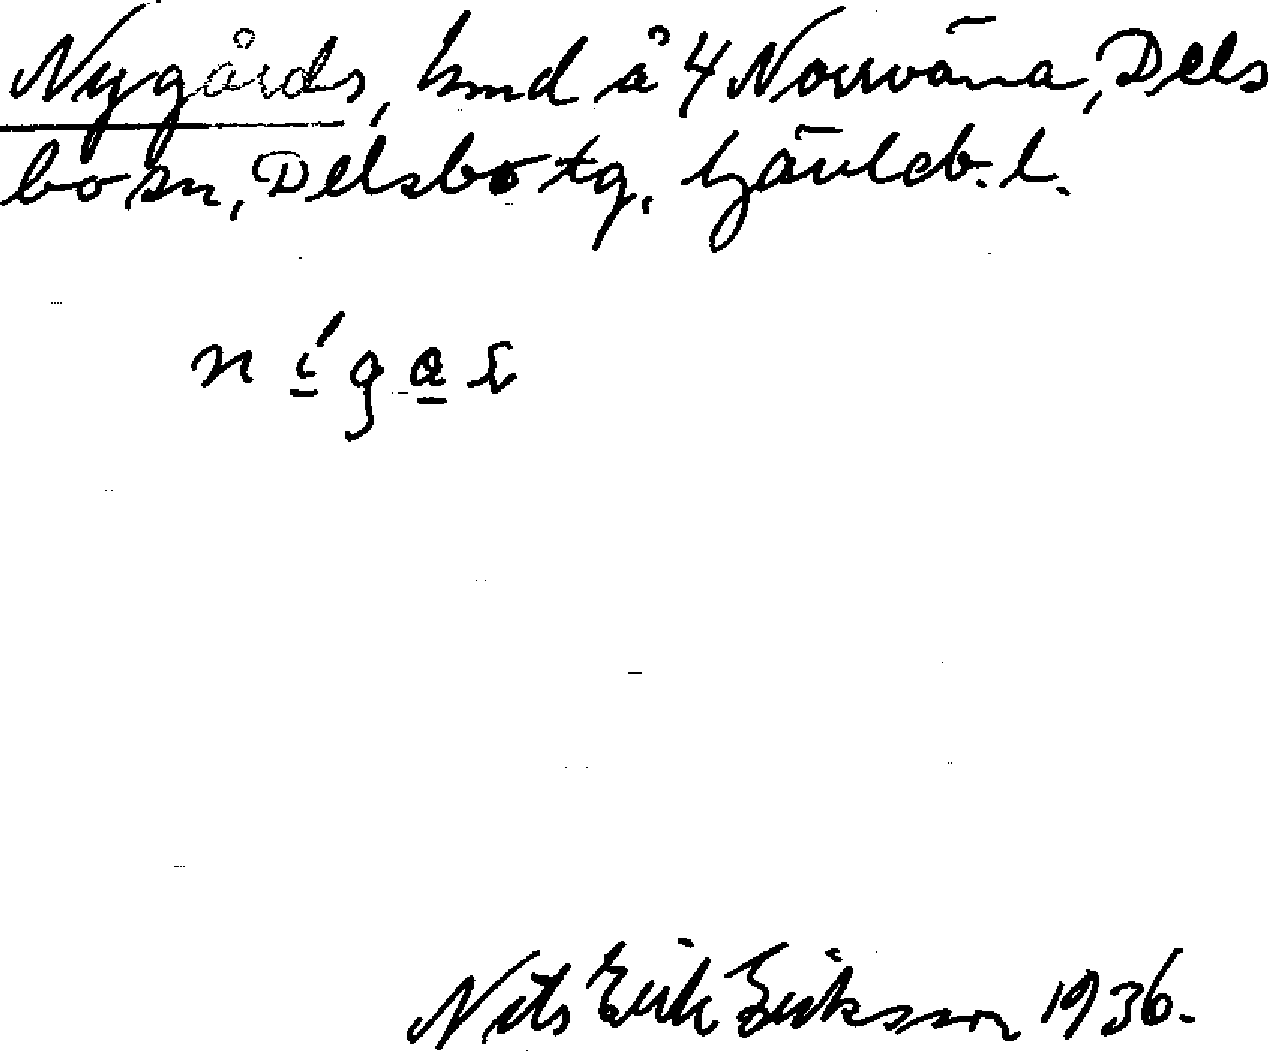 Nygårds, hmd å 4 Norrväna, Dels
bo sn, Delsbo tg, Gävleb. l.
nígas
Nils Erik Eriksson 1936.